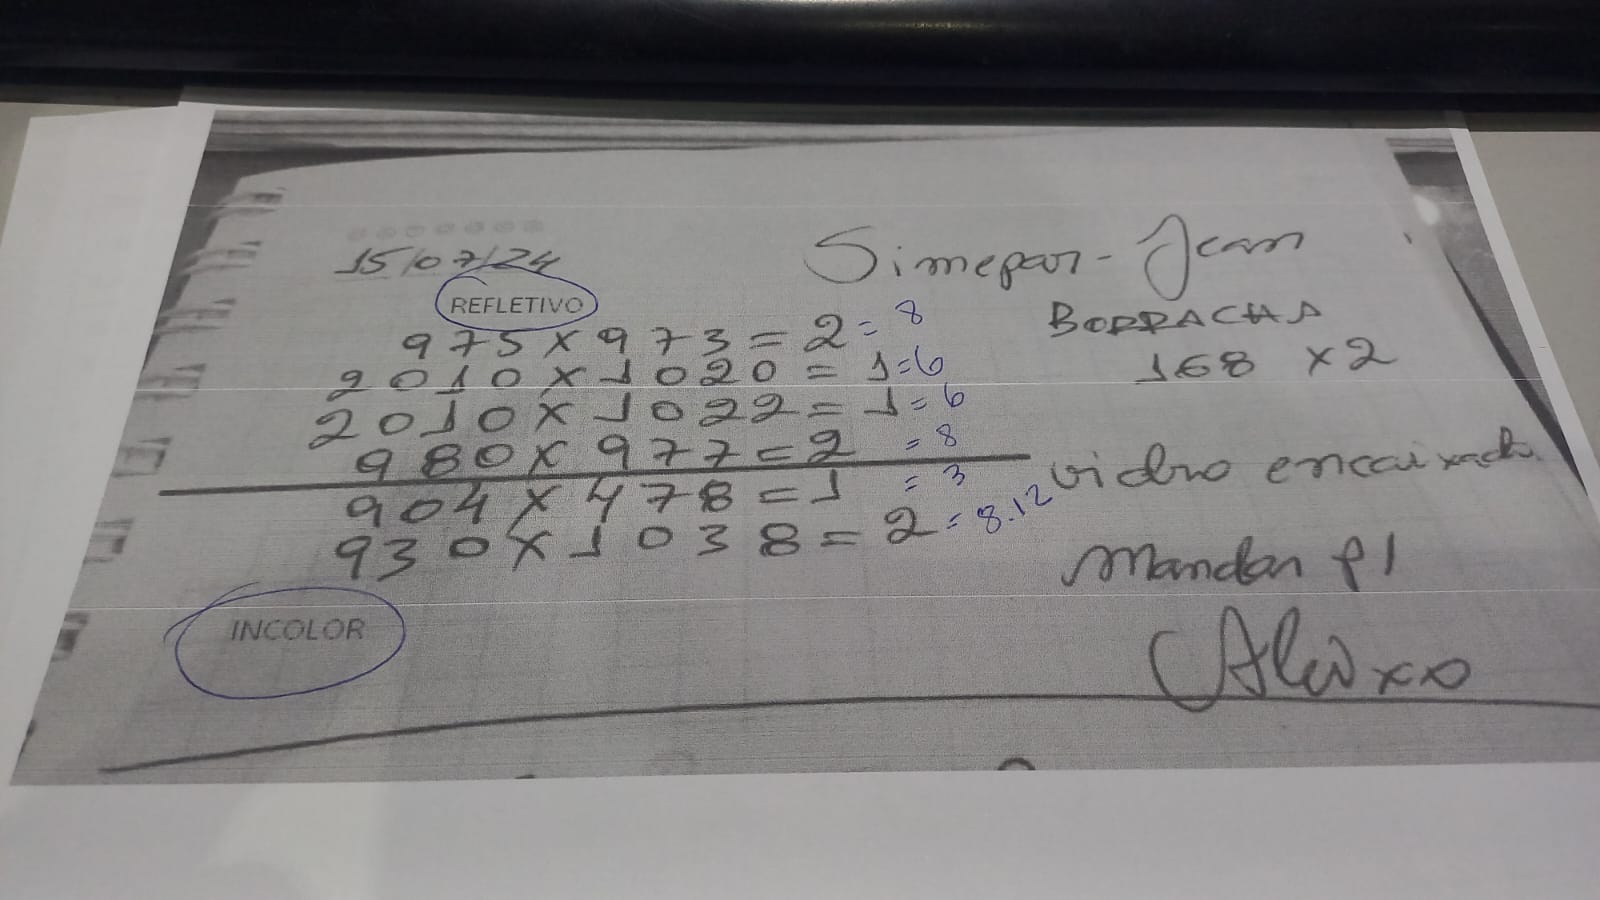 15/07/24
Simepar - Jean
REFLETIVO
975 x 973 = 2 = 8
BORRACHA
2010 x 1020 = 1 = 6
168 x 2
2010 x 1022 = 1 = 6
980 x 977 = 2 = 8
904 x 478 = 1 = 3
vidro encaixado
930 x 1038 = 2 = 8.12
Mandar p/
INCOLOR